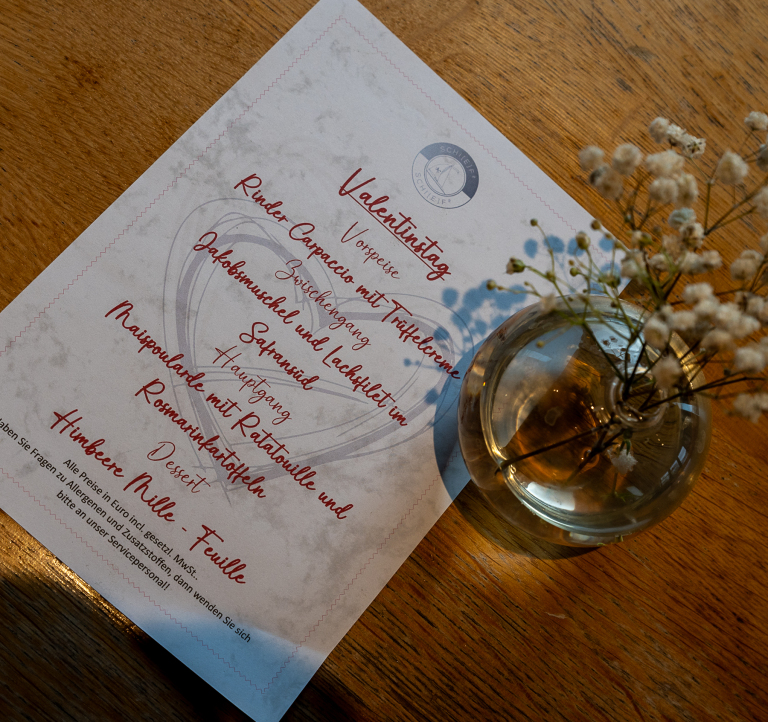 SCHLIERSEE
SCHLIERSEE
Valentinstag
Vorspeise
Rinder Carpaccio mit Trüffelcreme
Zwischengang
Jakobsmuschel und Lachsfilet im
Safransüd
Hauptgang
Maispoularde mit Ratatouille und
Rosmarinfartoffeln
Dessert
Himbeere Mille - Feuille
Alle Preise in Euro incl. gesetzl. MwSt..
Haben Sie Fragen zu Allergenen und Zusatzstoffen, dann wenden Sie sich
bitte an unser Servicepersonal!